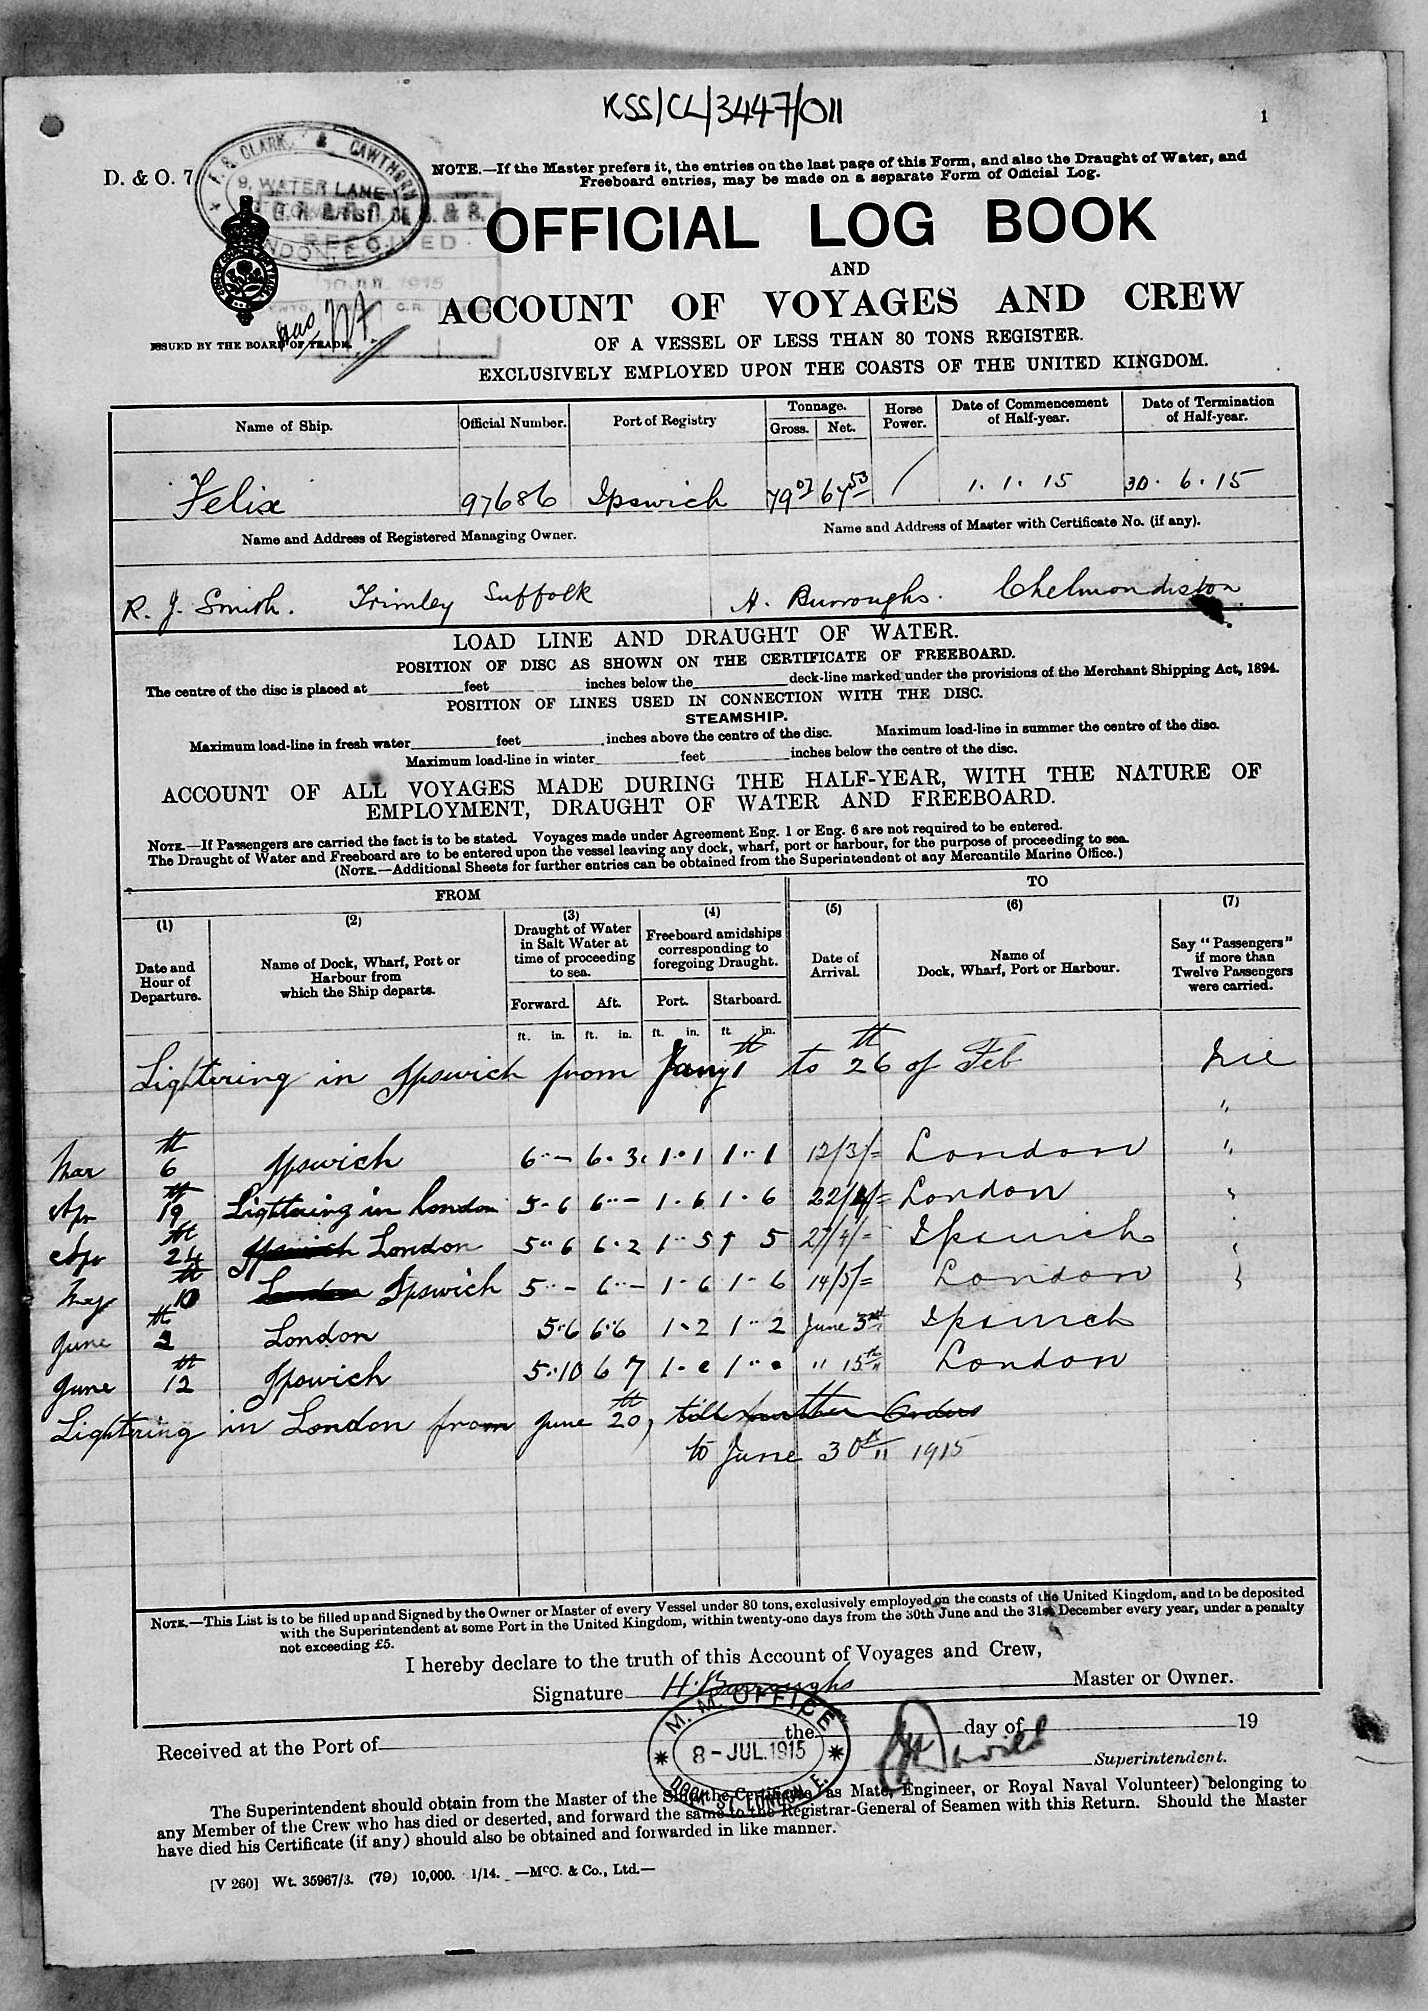 KSS/CL/3447/011
1
D. & O. 7
F. B. CLARK, & CAWTHORN
9, WATER LANE
RECEIVED
1915
NOTE.—If the Master prefers it, the entries on the last page of this Form, and also the Draught of Water, and
Freeboard entries, may be made on a separate Form of Official Log.
OFFICIAL LOG BOOK
AND
ACCOUNT OF VOYAGES AND CREW
OF A VESSEL OF LESS THAN 80 TONS REGISTER.
EXCLUSIVELY EMPLOYED UPON THE COASTS OF THE UNITED KINGDOM.
ISSUED BY THE BOARD OF TRADE.
Name of Ship. Official Number. Port of Registry Tonnage. Gross. Net. Horse Power. Date of Commencement of Half-year. Date of Termination of Half-year.
Felix 97686 Ipswich 79 07 67 53 / 1. 1. 15 30. 6. 15
Name and Address of Registered Managing Owner. Name and Address of Master with Certificate No. (if any).
R. J. Smith. Trimley Suffolk H. Burroughs. Chelmondiston
LOAD LINE AND DRAUGHT OF WATER.
POSITION OF DISC AS SHOWN ON THE CERTIFICATE OF FREEBOARD.
The centre of the disc is placed at feet inches below the deck-line marked under the provisions of the Merchant Shipping Act, 1894.
POSITION OF LINES USED IN CONNECTION WITH THE DISC.
STEAMSHIP.
Maximum load-line in fresh water feet inches above the centre of the disc. Maximum load-line in summer the centre of the disc.
Maximum load-line in winter feet inches below the centre of the disc.
ACCOUNT OF ALL VOYAGES MADE DURING THE HALF-YEAR, WITH THE NATURE OF
EMPLOYMENT, DRAUGHT OF WATER AND FREEBOARD.
NOTE.—If Passengers are carried the fact is to be stated. Voyages made under Agreement Eng. 1 or Eng. 6 are not required to be entered.
The Draught of Water and Freeboard are to be entered upon the vessel leaving any dock, wharf, port or harbour, for the purpose of proceeding to sea.
(NOTE.—Additional Sheets for further entries can be obtained from the Superintendent of any Mercantile Marine Office.)
FROM TO
(1) (2) (3) (4) (5) (6) (7)
Date and Hour of Departure. Name of Dock, Wharf, Port or Harbour from which the Ship departs. Draught of Water in Salt Water at time of proceeding to sea. Freeboard amidships corresponding to foregoing Draught. Date of Arrival. Name of Dock, Wharf, Port or Harbour. Say "Passengers" if more than Twelve Passengers were carried.
Forward. Aft. Port. Starboard.
ft. in. ft. in. ft. in. ft. in.
Lightering in Ipswich from Jany 1th to 26th of Feb Nil
"
Mar 6th Ipswich 6 - 6. 3. 1. 1 1. 1 12/3/= London "
Apr 19th Lightering in London 5-6 6 - 1. 6 1. 6 22/4/= London "
Apr 24th Ipswich London 5. 6 6. 2 1. 5 1 5 27/4/= Ipswich "
May 10th London Ipswich 5 - 6 - 1. 6 1. 6 14/5/= London "
June 2th London 5.6 6.6 1. 2 1. 2 June 3rd Ipswich
June 12th Ipswich 5.10 6 7 1. 0 1. 0 " 15th London
Lightering in London from June 20th, till further Orders
to June 30th 1915
NOTE.—This List is to be filled up and Signed by the Owner or Master of every Vessel under 80 tons, exclusively employed on the coasts of the United Kingdom, and to be deposited
with the Superintendent at some Port in the United Kingdom, within twenty-one days from the 30th June and the 31st December every year, under a penalty
not exceeding £5.
I hereby declare to the truth of this Account of Voyages and Crew,
Signature H. Burroughs Master or Owner.
Received at the Port of the day of 19
M. M. OFFICE
8-JUL.1915
DOCK ST. LONDON. E.
Superintendent.
The Superintendent should obtain from the Master of the Ship the Certificate (as Mate, Engineer, or Royal Naval Volunteer) belonging to
any Member of the Crew who has died or deserted, and forward the same to the Registrar-General of Seamen with this Return. Should the Master
have died his Certificate (if any) should also be obtained and forwarded in like manner.
[V 260] Wt. 35967/3. (79) 10,000. 1/14. —McC. & Co., Ltd.—